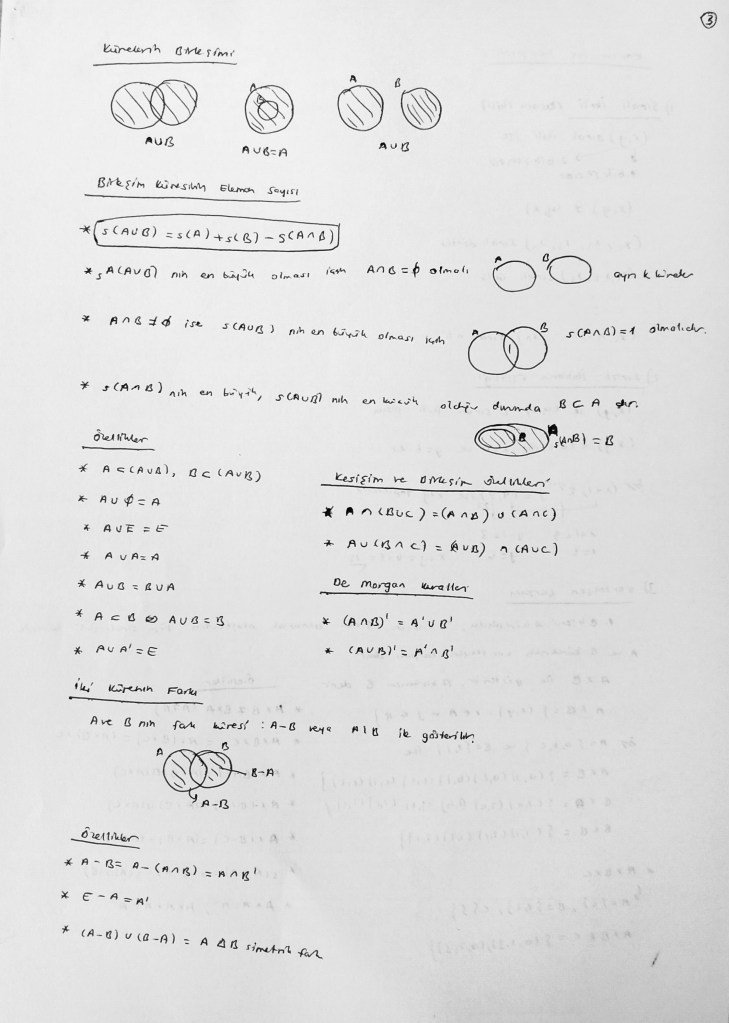 3
Kümelerin Birleşimi
A B
A∪B A∪B=A A∪B
Birleşim Kümesinin Eleman Sayısı
* s(A∪B) = s(A) + s(B) - s(A∩B)
* s A(A∪B) nin en büyük olması için A∩B=∅ olmalı A B ayrık kümeler
* A∩B ≠ ∅ ise s(A∪B) nin en büyük olması için A B s(A∩B)=1 olmalıdır.
* s(A∩B) nin en büyük, s(A∪B) nin en küçük olduğu durumda B⊂A dır.
B A s(A∩B) = B
Özellikler
* A⊂(A∪B), B⊂(A∪B)
* A∪∅=A
* A∪E=E
* A∪A=A
* A∪B=B∪A
* A⊂B ⇔ A∪B=B
* A∪A'=E
Kesişim ve Birleşim Özellikleri
* A∩(B∪C)=(A∩B)∪(A∩C)
* A∪(B∩C)=(A∪B)∩(A∪C)
De Morgan Kuralları
* (A∩B)'=A'∪B'
* (A∪B)'=A'∩B'
İki Kümenin Farkı
A ve B nin fark kümesi : A-B veya A\B ile gösterilir.
A B
B-A
A-B
Özellikler
* A-B= A-(A∩B)=A∩B'
* E-A=A'
* (A-B)∪(B-A) = A△B simetrik fark